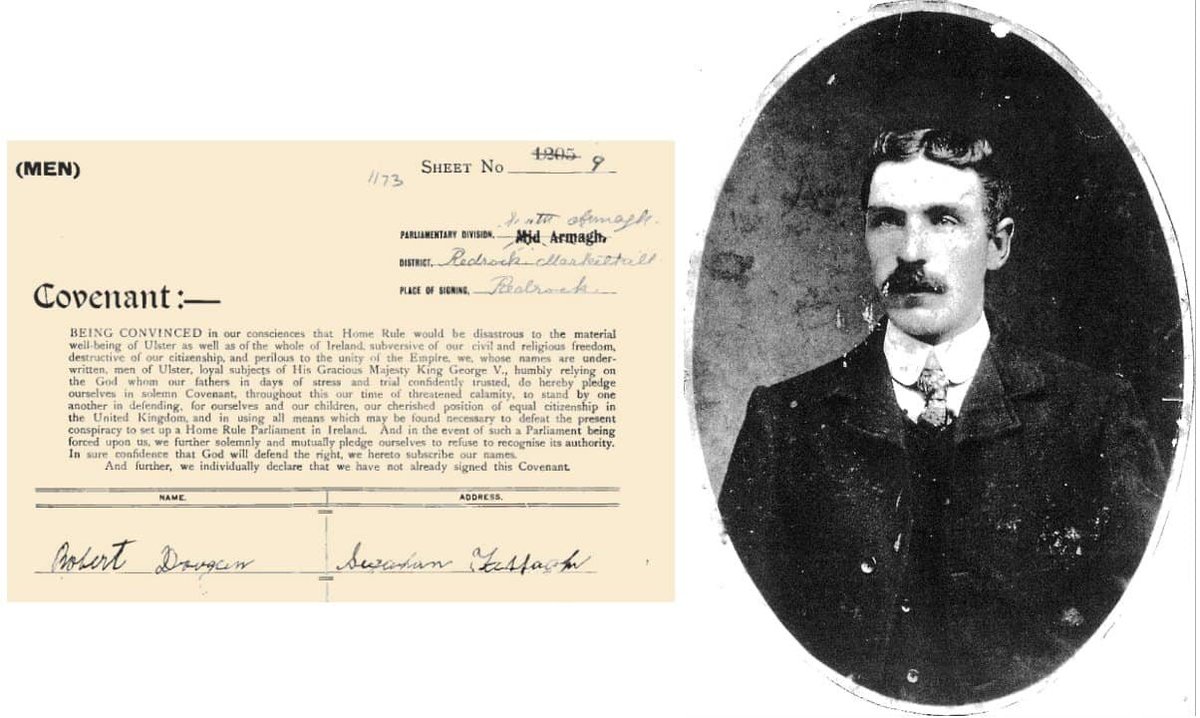 (MEN)
1173
SHEET No 1205 9
South Armagh.
PARLIAMENTARY DIVISION, Mid Armagh,
DISTRICT, Redrock Markethill
PLACE OF SIGNING, Redrock
Covenant:—
BEING CONVINCED in our consciences that Home Rule would be disastrous to the material
well-being of Ulster as well as of the whole of Ireland, subversive of our civil and religious freedom,
destructive of our citizenship, and perilous to the unity of the Empire, we, whose names are under-
written, men of Ulster, loyal subjects of His Gracious Majesty King George V., humbly relying on
the God whom our fathers in days of stress and trial confidently trusted, do hereby pledge
ourselves in solemn Covenant, throughout this our time of threatened calamity, to stand by one
another in defending, for ourselves and our children, our cherished position of equal citizenship in
the United Kingdom, and in using all means which may be found necessary to defeat the present
conspiracy to set up a Home Rule Parliament in Ireland. And in the event of such a Parliament being
forced upon us, we further solemnly and mutually pledge ourselves to refuse to recognise its authority.
In sure confidence that God will defend the right, we hereto subscribe our names.
And further, we individually declare that we have not already signed this Covenant.
NAME. ADDRESS.
Robert Dougan